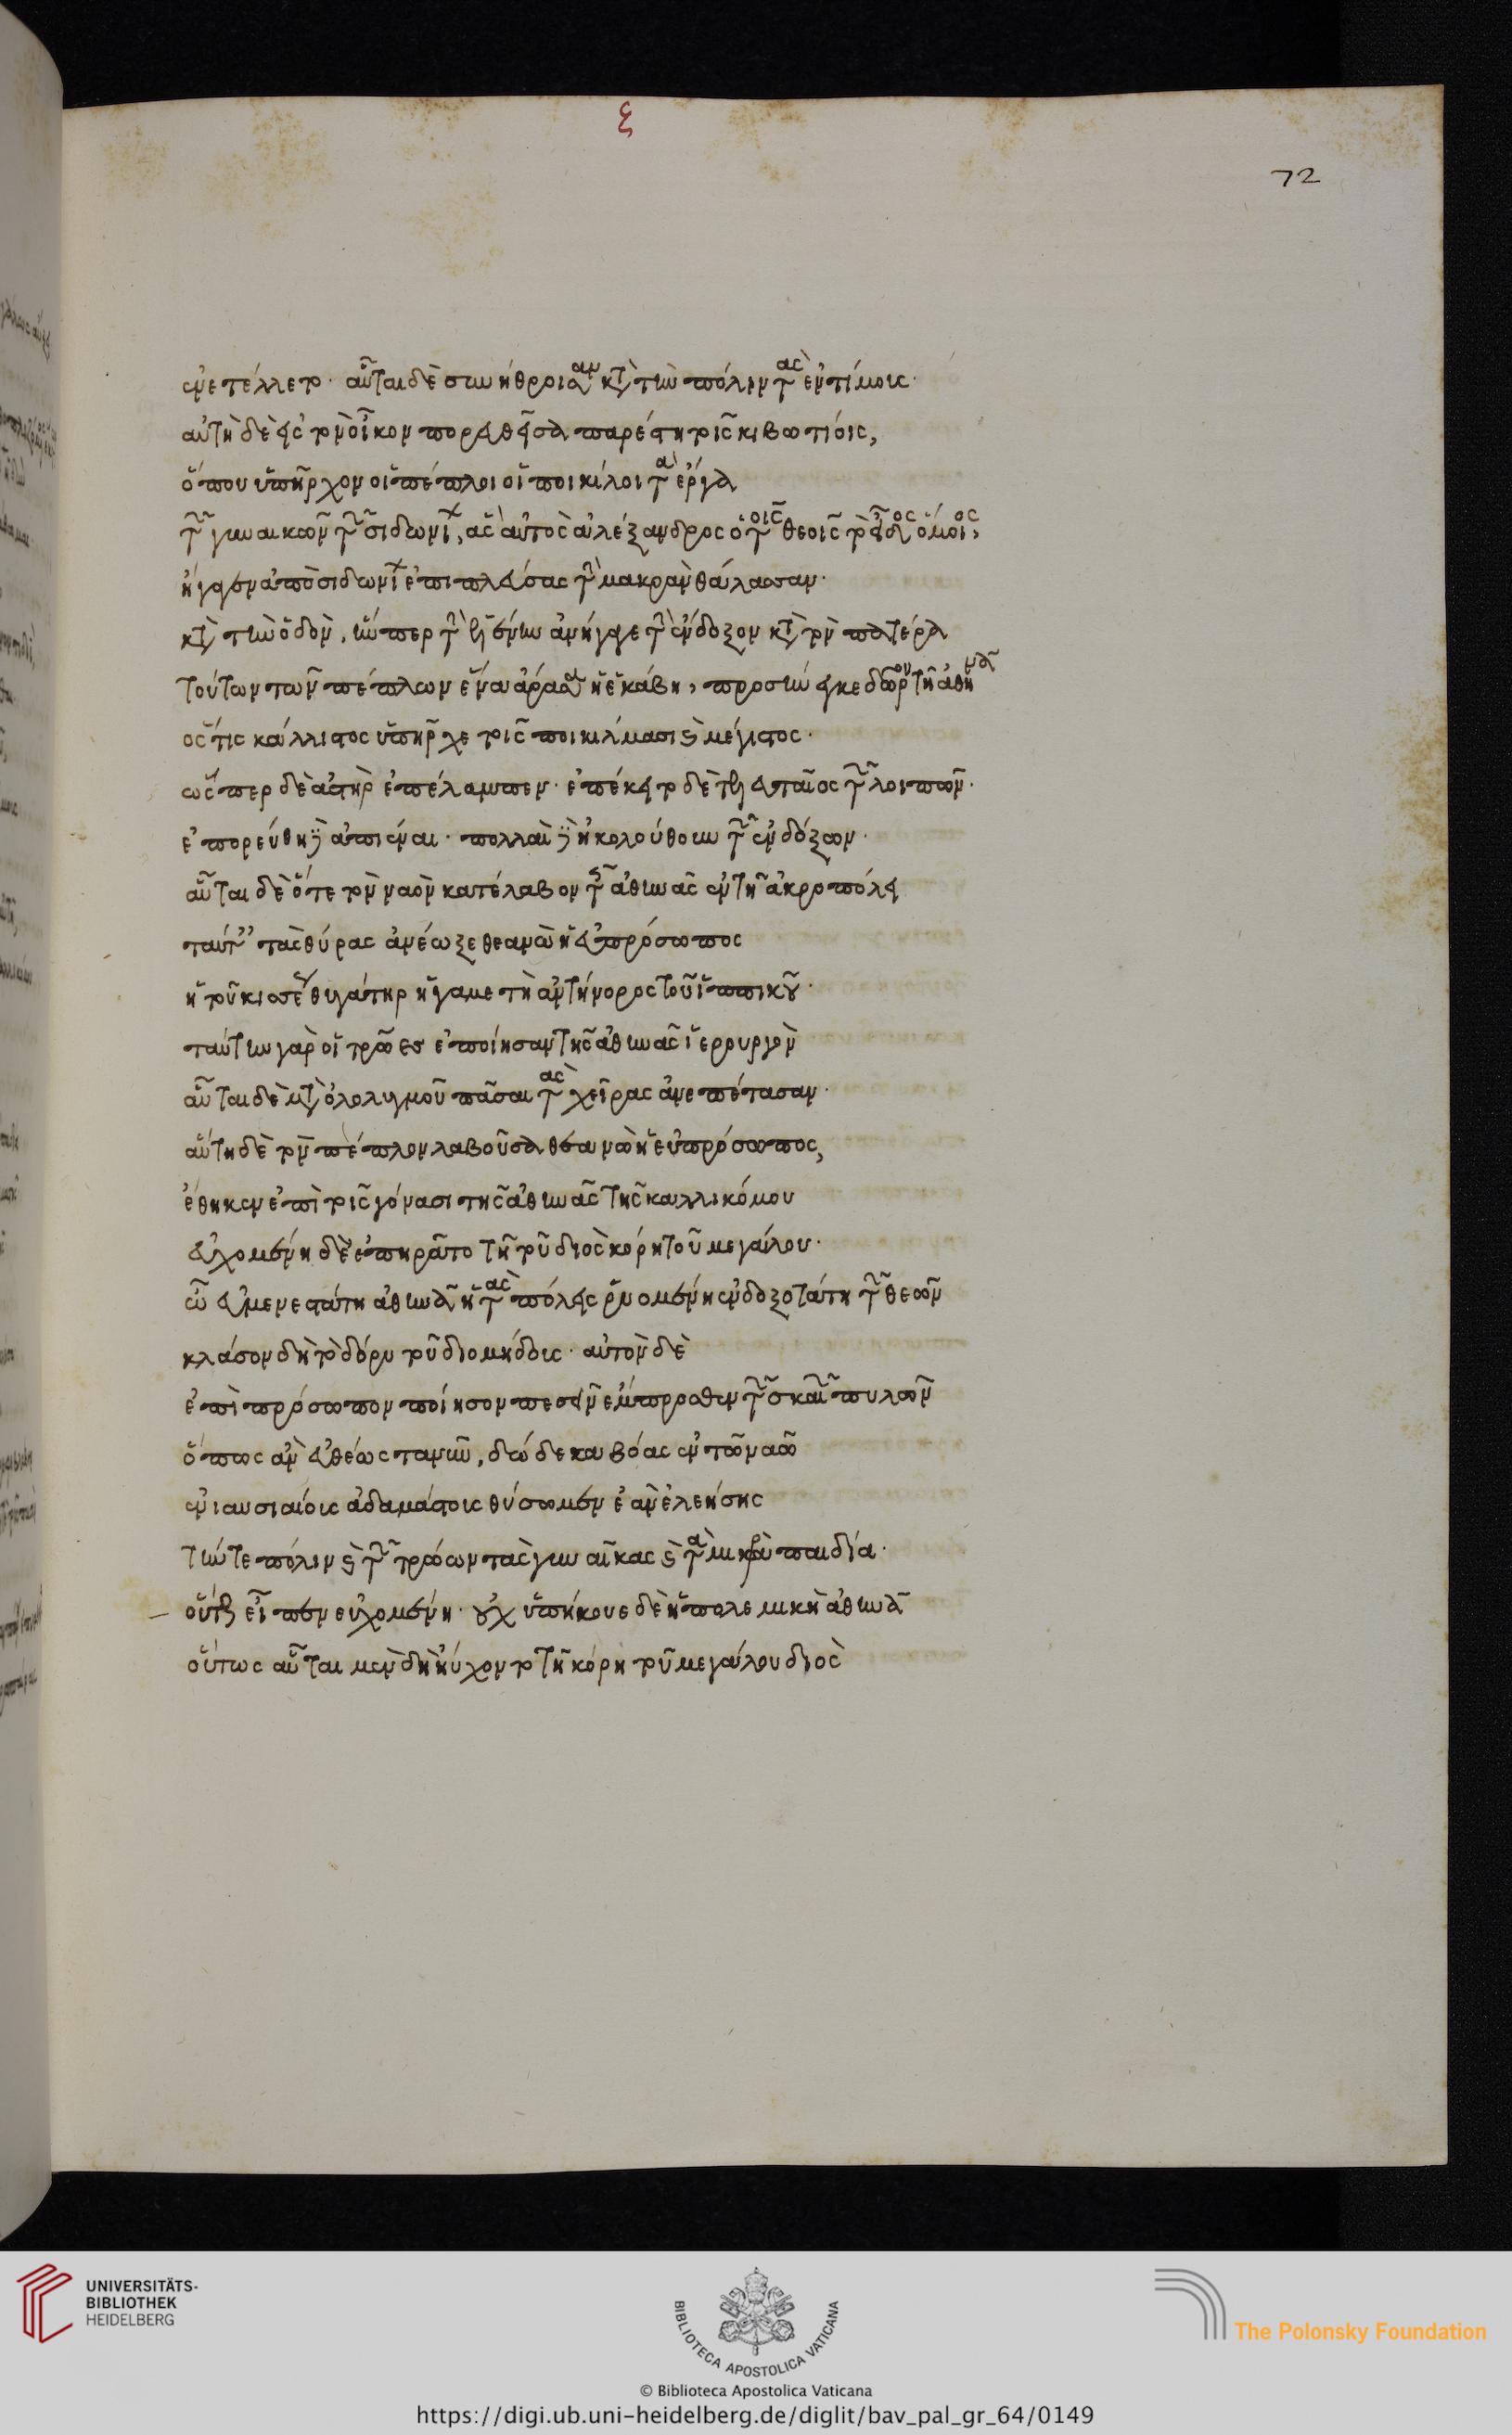 ξ
72
ἐνετέλλετο· αὗται δὲ συνήθροισαν κατὰ τὴν πόλιν τὰς ἐντίμους·
αὐτὴ δὲ εἰς τὸν οἶκον πορευθεῖσα παρέστη τοῖς κιβωτίοις,
ὅπου ὑπῆρχον οἱ πέπλοι οἱ ποικίλοι τὰ ἔργα
τῶν γυναικῶν τῶν σιδωνίων, ἃς αὐτὸς ἀλέξανδρος ὁ τοῖς θεοῖς τὸ εἶδος ὅμοιος,
ἤγαγεν ἀπὸ σιδωνίας ἐπιπλεύσας τὴν μακρὰν θάλασσαν·
κατὰ τὴν ὁδὸν, ἥνπερ τὴν ἑλένην ἀνήγαγε τὴν ἔνδοξον κατὰ τὸν πατέρα
τούτων τῶν πέπλων ἕνα ἄρασα ἡ ἑκάβη, προσήνεγκε δῶρον τῇ ἀθηνᾶ
ὅστις κάλλιστος ὑπῆρχε τοῖς ποικίλμασι καὶ μέγιστος·
ὥσπερ δὲ ἀστὴρ ἐπέλαμπεν· ἐπέκειτο δὲ τελευταῖος τῶν λοιπῶν·
ἐπορεύθη δὲ ἀπιέναι· πολλαὶ δὲ ἠκολούθουν τῶν ἐνδόξων·
αὗται δὲ ὅτε τὸν ναὸν κατέλαβον τῆς ἀθηνᾶς ἐν τῇ ἀκροπόλει
ταύταις τὰς θύρας ἀνέωξε θεανὼ ἡ εὐπρόσωπος
ἡ τοῦ κισσέως θυγάτηρ ἡ γαμετὴ ἀντήνορος τοῦ ἱππικοῦ·
ταύτην γὰρ οἱ τρῶες ἐποίησαν τῆς ἀθηνᾶς ἱερουργὸν
αὗται δὲ μετὰ ὀλολυγμοῦ πᾶσαι τὰς χεῖρας ἀνεπέτασαν·
αὕτη δὲ τὸν πέπλον λαβοῦσα θεανὼ ἡ εὐπρόσωπος,
ἔθηκεν ἐπὶ τοῖς γόνασι τῆς ἀθηνᾶς τῆς καλλικόμου
εὐχομένη δὲ ἐπηρᾶτο τῇ τοῦ διὸς κόρη τοῦ μεγάλου·
ὦ εὐμενεστάτη ἀθηνᾶ ἡ τὰς πόλεις ῥυομένη ἐνδοξοτάτη τῶν θεῶν
κλάσον δὴ τὸ δόρυ τοῦ διομήδους· αὐτὸν δὲ
ἐπὶ πρόσωπον ποίησον πεσεῖν ἔμπροσθεν τῶν σκαιῶν πυλῶν
ὅπως ἂν εὐθέως τανῦν, δώδεκα βόας ἐν τῶ ναῶ
ἐνιαυσιαίους ἀδαμάστους θύσωμεν ἐὰν ἐλεήσης
τήν τε πόλιν καὶ τῶν τρώων τὰς γυναῖκας καὶ τὰ μικρὰ παιδία·
οὕτως εἶπεν εὐχομένη· οὐχ ὑπήκουε δὲ ἡ πολεμικὴ ἀθηνᾶ
οὕτως αὗται μὲν δὴ ηὔχοντο τῇ κόρη τοῦ μεγάλου διὸς
UNIVERSITÄTS-
BIBLIOTHEK
HEIDELBERG
BIBLIOTECA APOSTOLICA VATICANA
The Polonsky Foundation
© Biblioteca Apostolica Vaticana
https://digi.ub.uni-heidelberg.de/diglit/bav_pal_gr_64/0149